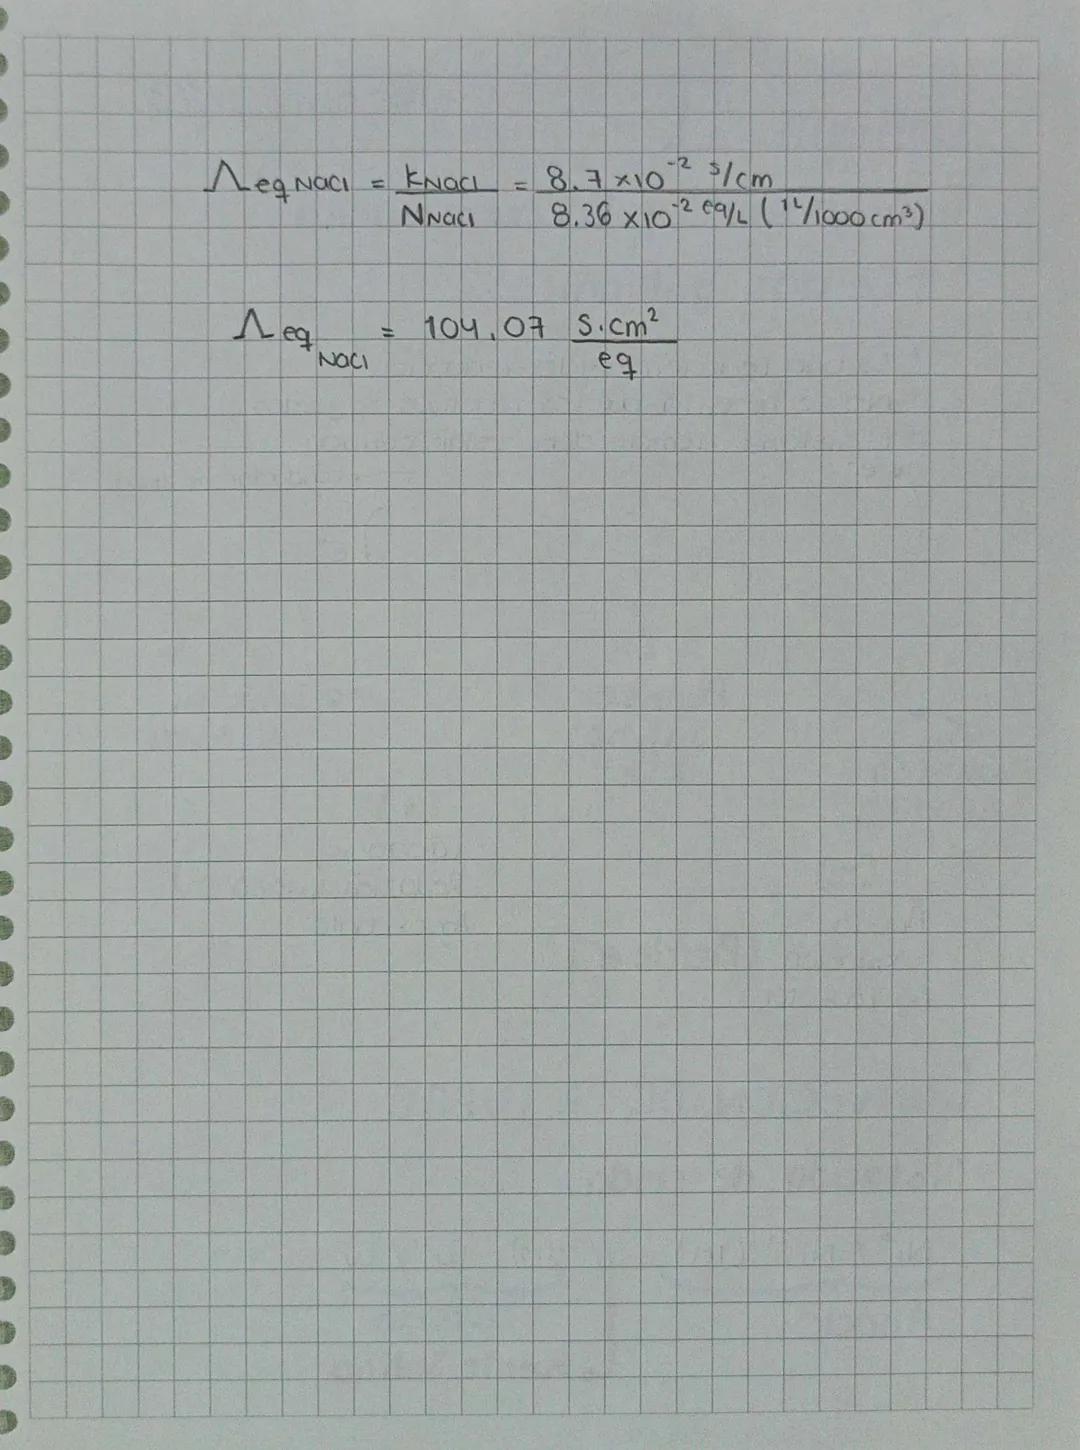 Λeq NaCl = KNaCl / NNaCl = 8.7 x10⁻² S/cm / 8.36 x10⁻² eq/L (1L/1000cm³)
Λeq NaCl = 104.07 S·cm² / eq